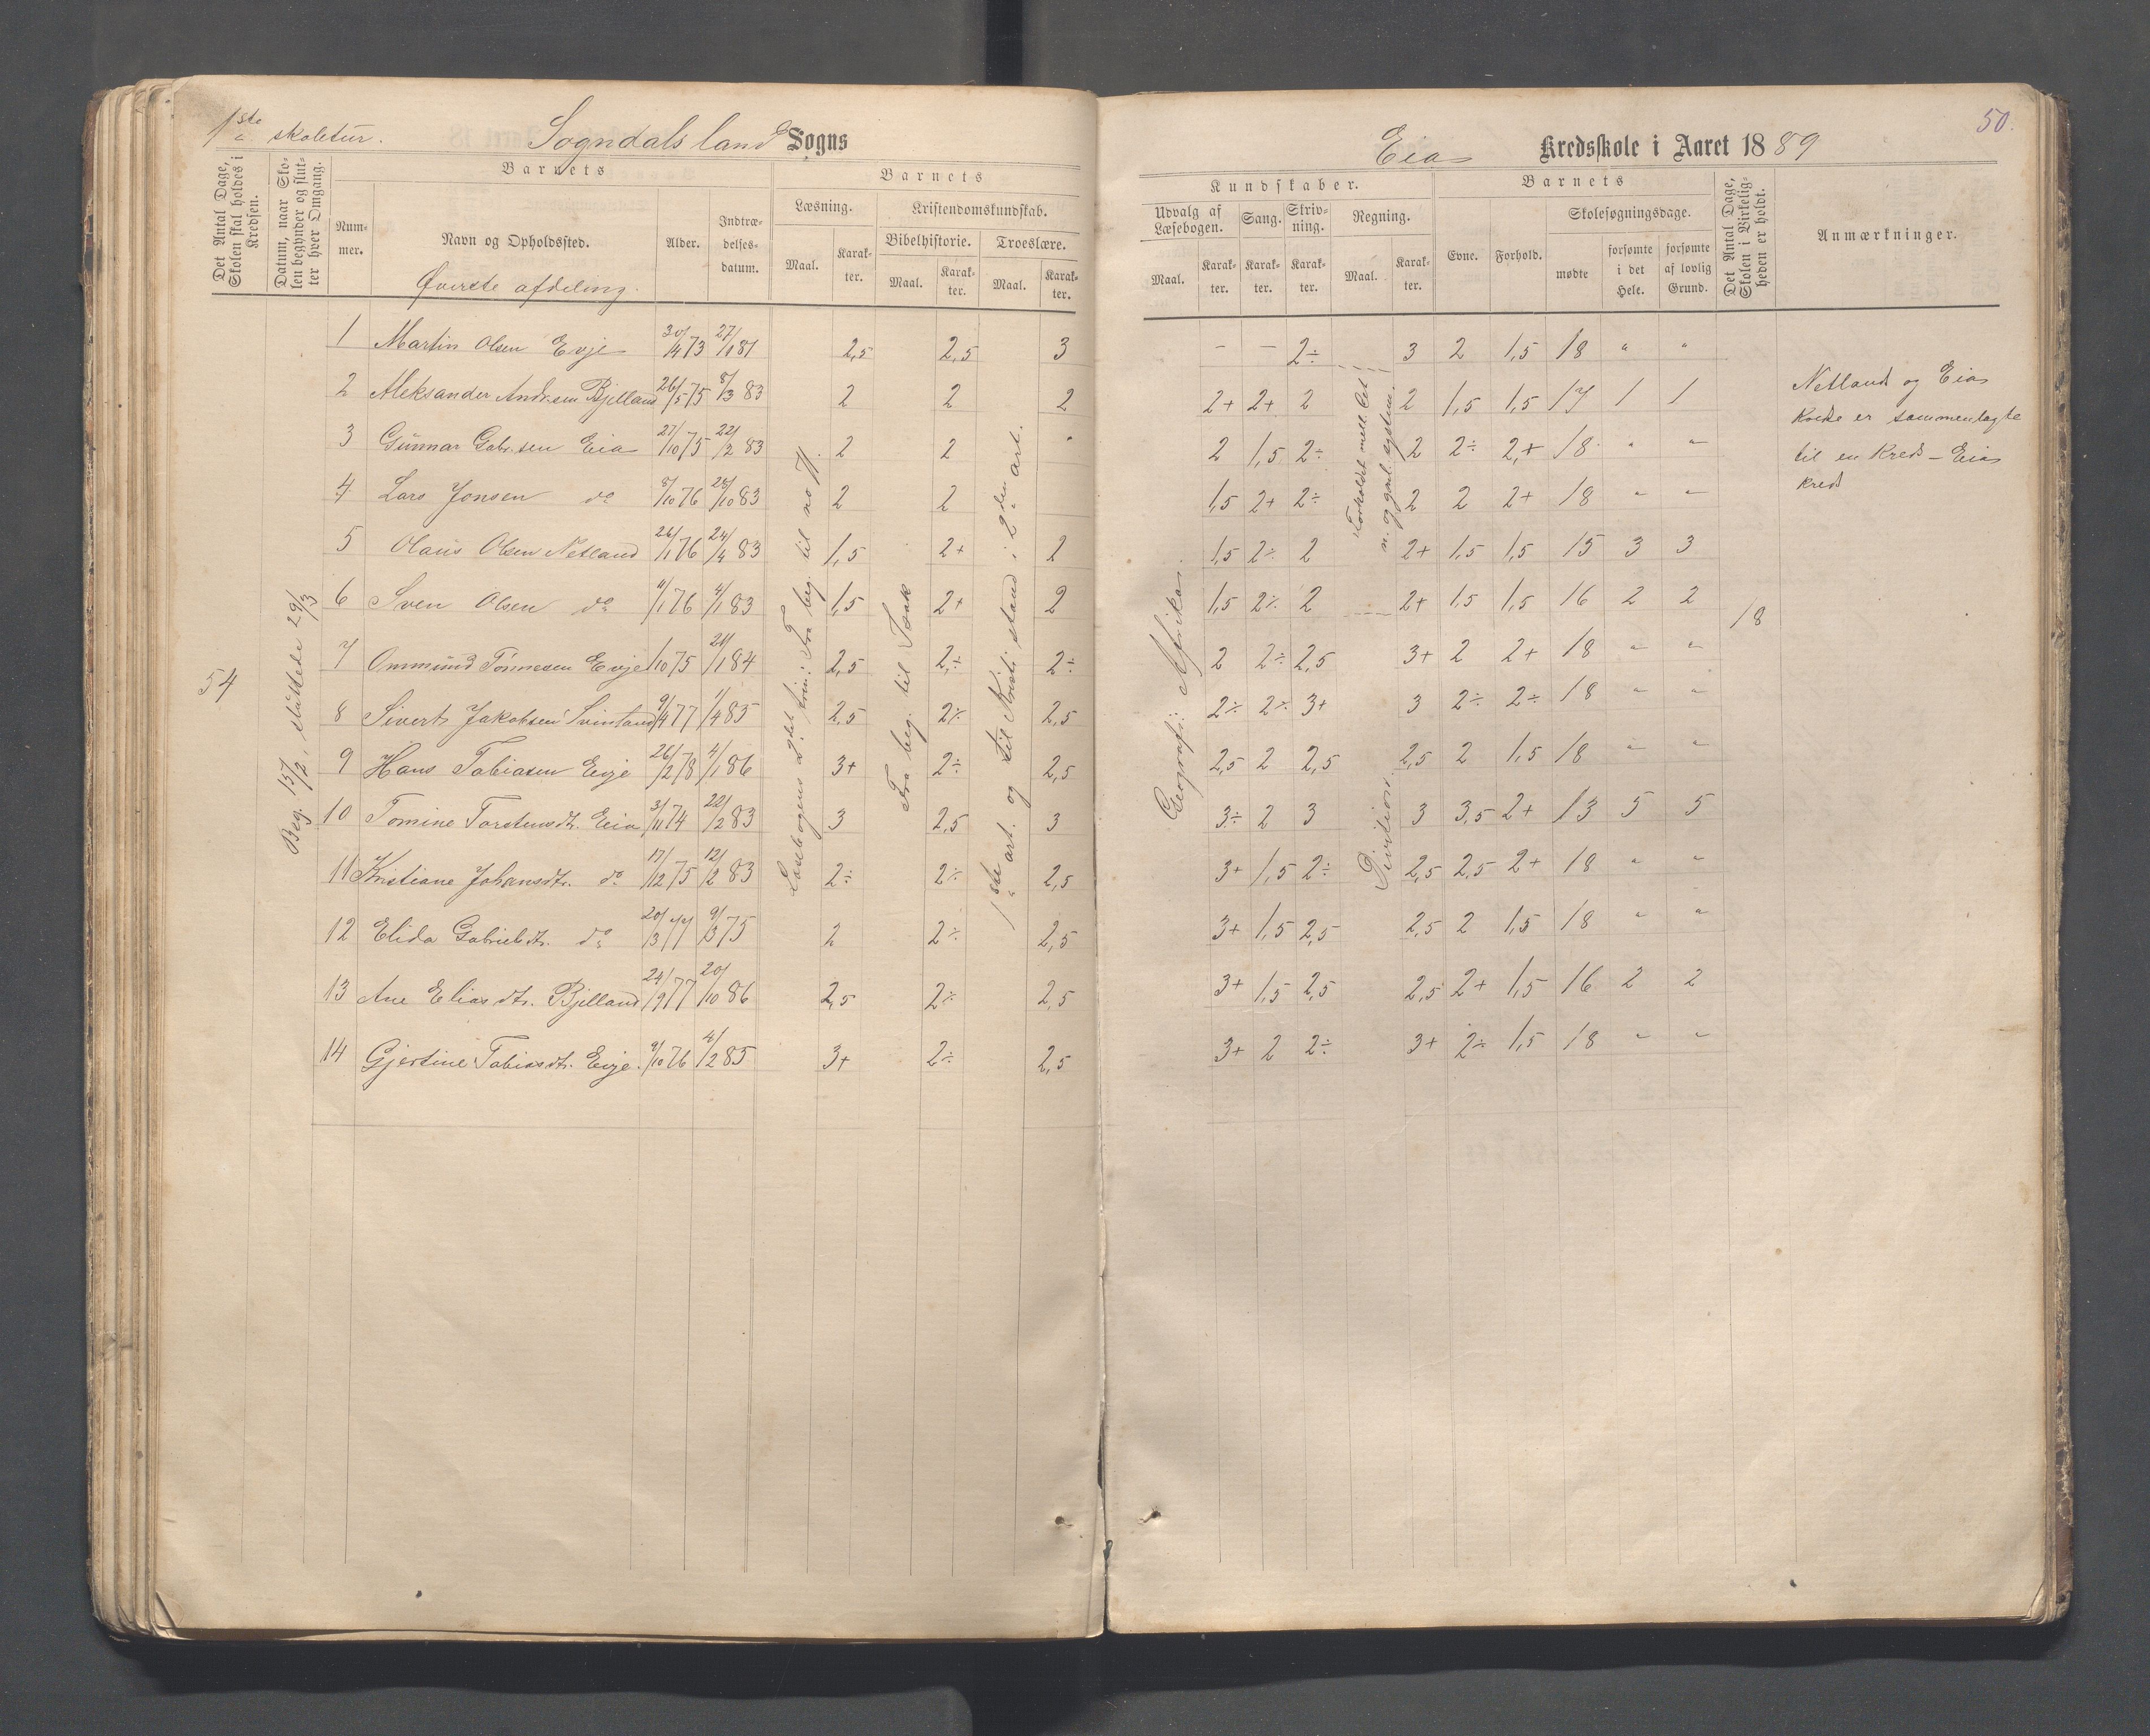 1ste skoletur.
Sogndals land Sogns
Det Antal Dage, Skolen skal holdes i Kredsen.
Datum, naar Skolen begynder og slutter hver Omgang.
Barnets
Barnets
Nummer.
Navn og Opholdssted.
Alder.
Indtrædelsesdatum.
Læsning.
Kristendomskundskab.
Bibelhistorie.
Troeslære.
Maal.
Karakter.
Maal.
Karakter.
Maal.
Karakter.
Øverste afdeling.
54
Beg. 15/2, sluttede 29/3
Læsebogens 2det trin: Fra beg. til no 7.
Fra beg. til Isak
1ste art. og til Kristi stand i 2den art.
1 Martin Olsen Evje 30/4 73 27/1 81 2,5 2,5 3
2 Aleksander Andr.sen Bjelland 26/5 75 8/3 83 2 2 2
3 Gunnar Gabr.sen Eia 27/10 75 22/2 83 2 2 "
4 Lars Jonsen do 8/10 76 28/10 83 2 2
5 Olaus Olsen Netland 26/1 76 24/4 83 1,5 2+ 2
6 Sven Olsen do /1 76 4/1 83 1,5 2+ 2
7 Ommund Tönnesen Evje 1/10 75 21/1 84 2,5 2÷ 2÷
8 Sivert Jakobsen Svinland 9/4 77 1/4 85 2,5 2÷ 2,5
9 Hans Tobiasen Evje 26/2 78 4/1 86 3+ 2÷ 2,5
10 Tomine Torstensdt. Eia 3/11 74 22/2 83 3 2,5 3
11 Kristiane Johansdtr. do 17/12 75 12/2 83 2÷ 2÷ 2,5
12 Elida Gabrielsdtr. do 20/3 77 9/3 75 2 2÷ 2,5
13 Ane Eliasdtr. Bjelland 24/9 77 20/10 86 2,5 2÷ 2,5
14 Gjertine Tobiasdtr. Evje. 9/10 76 4/2 85 3+ 2÷ 2,5
50.
Eia Kredsskole i Aaret 1889
Kundskaber.
Barnets
Det Antal Dage, Skolen i Virkeligheden er holdt.
Anmærkninger.
Udvalg af Læsebogen.
Sang.
Skrivning.
Regning.
Evne.
Forhold.
Skolesøgningsdage.
Maal.
Karakter.
Karakter.
Karakter.
Maal.
Karakter.
mødte
forsømte i det Hele.
forsømte af lovlig Grund.
Geografi: Afrika.
Forholdet mell. let n. og gml. system.
Division.
– – 2÷ 3 2 1,5 18 " "
2+ 2+ 2 2 1,5 1,5 17 1 1
2 1,5 2÷ 2 2÷ 2,+ 18 " "
1,5 2+ 2÷ 2 2 2+ 18 " "
1,5 2÷ 2 2+ 1,5 1,5 15 3 3
1,5 2÷ 2 2+ 1,5 1,5 16 2 2
18
2 2÷ 2,5 3+ 2 2+ 18 " "
2÷ 2÷ 3+ 3 2÷ 2÷ 18 " "
2,5 2 2,5 2,5 2 1,5 18 " "
3÷ 2 3 3 3,5 2+ 13 5 5
3+ 1,5 2÷ 2,5 2,5 2+ 18 " "
3+ 1,5 2,5 2,5 2 1,5 18 " "
3+ 1,5 2,5 2,5 2+ 1,5 16 2 2
3+ 2 2÷ 3+ 2÷ 1,5 18 " "
Netland og Eia
Kredse er sammenlagte
til en Kreds – Eia
Kreds